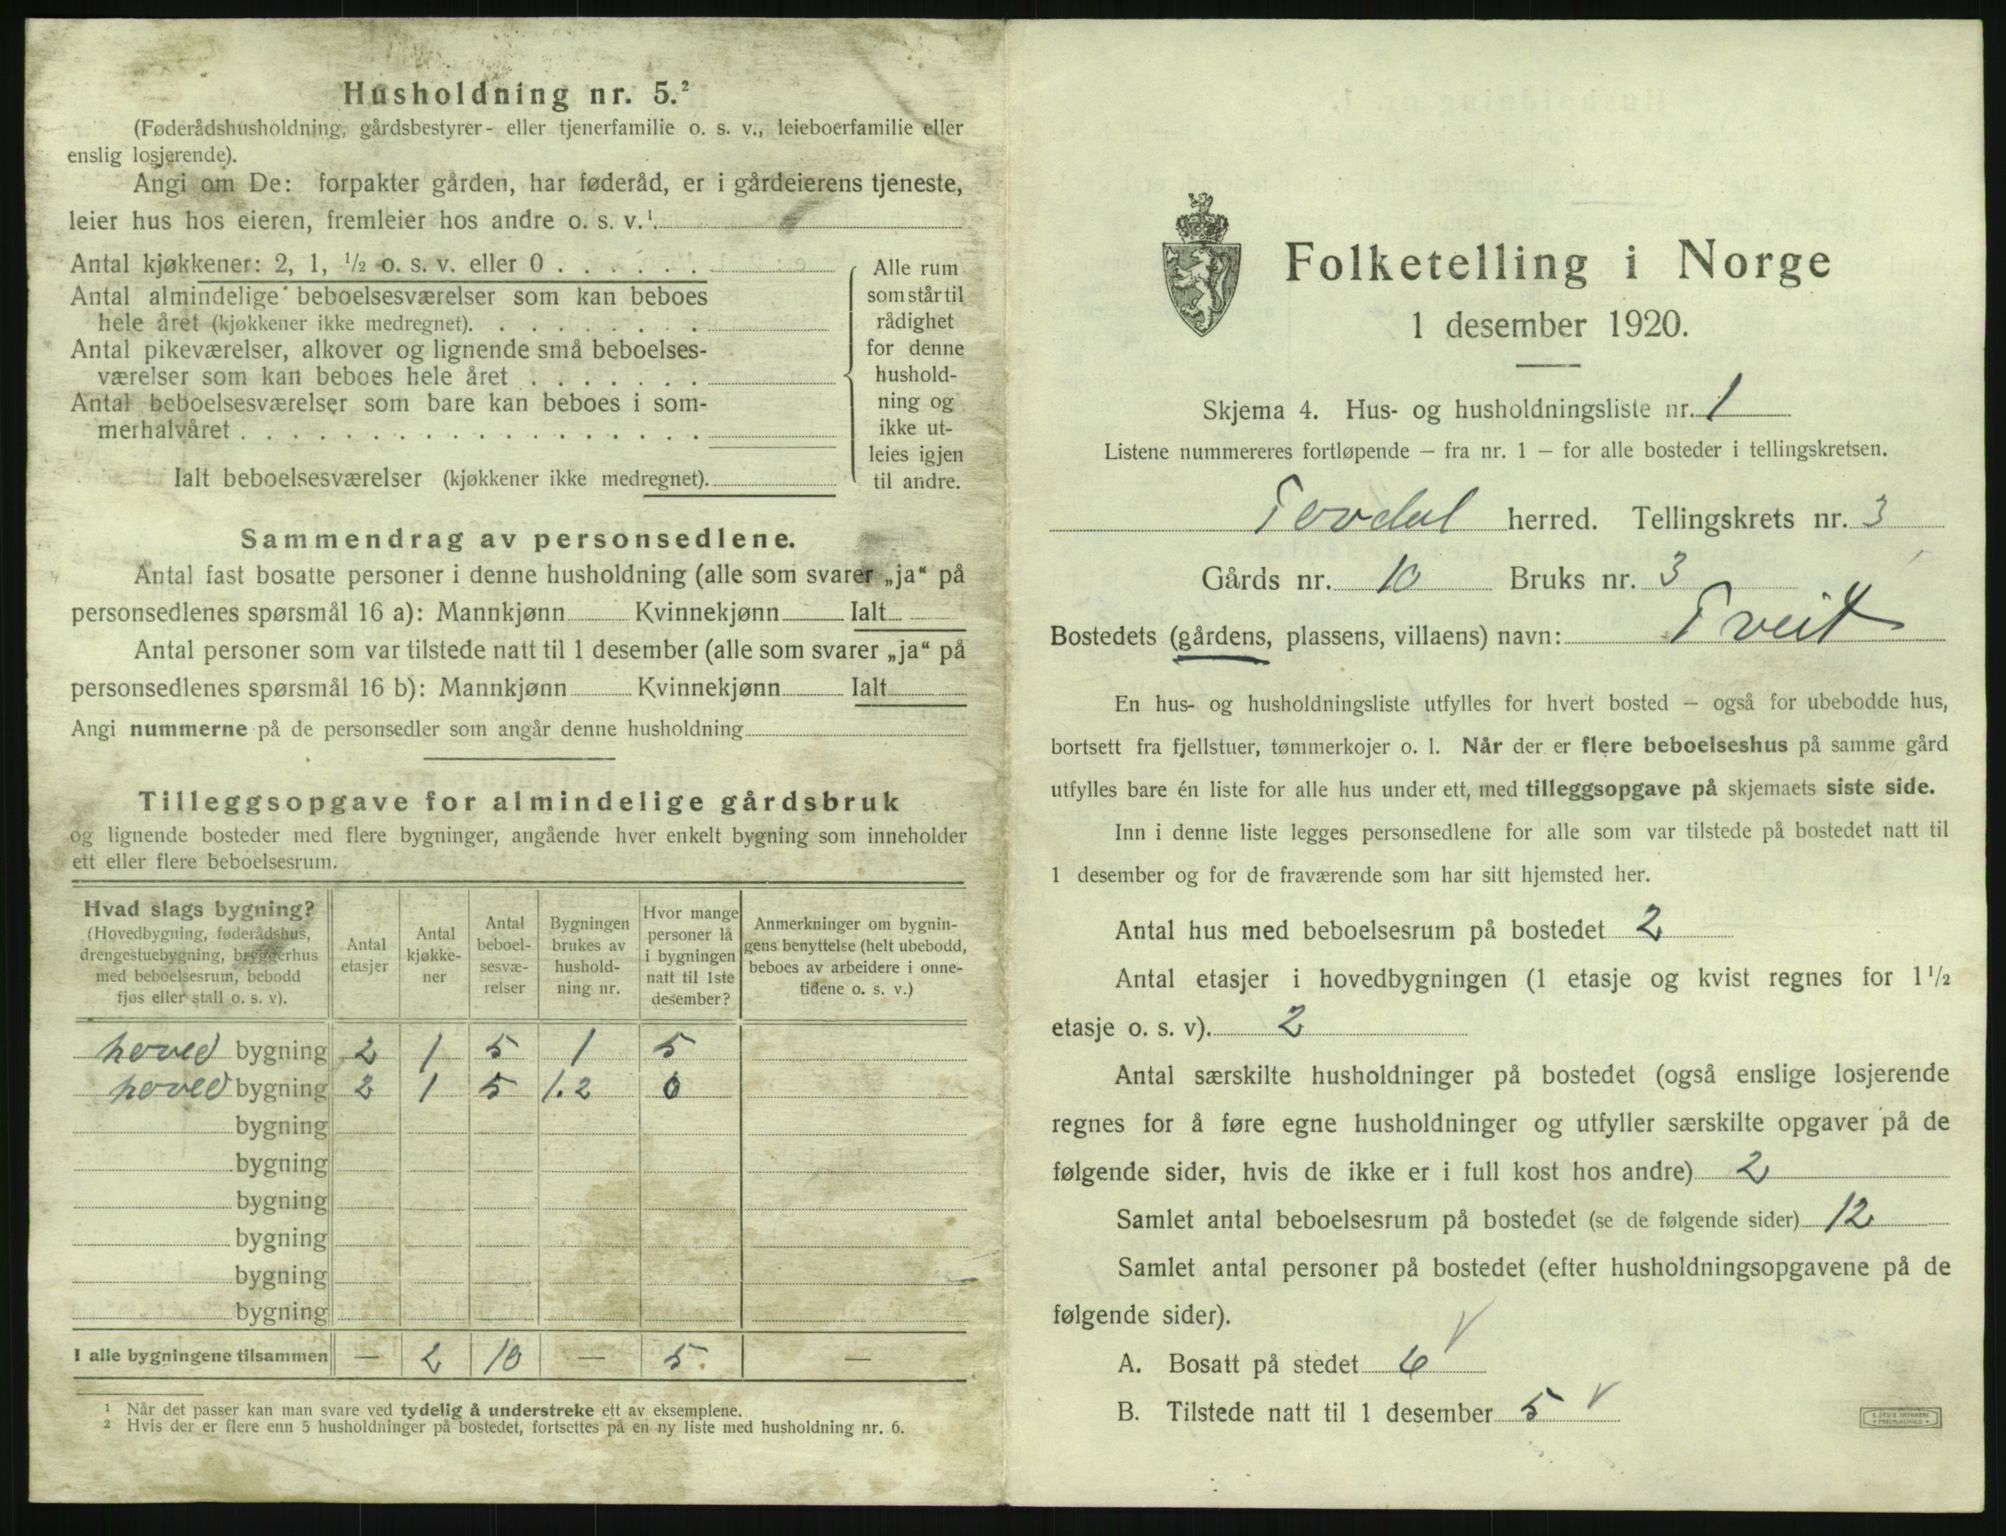 Husholdning nr. 5.²
(Føderådshusholdning, gårdsbestyrer- eller tjenerfamilie o. s. v., leieboerfamilie eller
enslig losjerende).
Angi om De: forpakter gården, har føderåd, er i gårdeierens tjeneste,
leier hus hos eieren, fremleier hos andre o. s. v.¹
Antal kjøkkener: 2, 1, ½ o. s. v. eller 0 . . . . . .
Antal almindelige beboelsesværelser som kan beboes
hele året (kjøkkener ikke medregnet). . . . . . . . .
Antal pikeværelser, alkover og lignende små beboelses-
værelser som kan beboes hele året . . . . . . .
Antal beboelsesværelser som bare kan beboes i som-
merhalvåret . . . . . . . . . . . . . . . . . .
Ialt beboelsesværelser (kjøkkener ikke medregnet).
Alle rum
som står til
rådighet
for denne
hushold-
ning og
ikke ut-
leies igjen
til andre.
Sammendrag av personsedlene.
Antal fast bosatte personer i denne husholdning (alle som svarer „ja“ på
personsedlenes spørsmål 16 a): Mannkjønn Kvinnekjønn Ialt
Antal personer som var tilstede natt til 1 desember (alle som svarer „ja“ på
personsedlenes spørsmål 16 b): Mannkjønn Kvinnekjønn Ialt
Angi nummerne på de personsedler som angår denne husholdning
Tilleggsopgave for almindelige gårdsbruk
og lignende bosteder med flere bygninger, angående hver enkelt bygning som inneholder
ett eller flere beboelsesrum.
Hvad slags bygning?
(Hovedbygning, føderådshus,
drengestuebygning, bryggerhus
med beboelsesrum, bebodd
fjøs eller stall o. s. v).
Antal
etasjer
Antal
kjøkke-
ner
Antal
beboel-
sesvæ-
relser
Bygningen
brukes av
hushold-
ning nr.
Hvor mange
personer lå
i bygningen
natt til 1ste
desember?
Anmerkninger om bygnin-
gens benyttelse (helt ubebodd,
beboes av arbeidere i onne-
tidene o. s. v.)
hoved bygning 2 1 5 1 5
hoved bygning 2 1 5 1.2 0
bygning
bygning
bygning
bygning
bygning
bygning
I alle bygningene tilsammen — 2 10 — 5. —
¹ Når det passer kan man svare ved tydelig å understreke ett av eksemplene.
² Hvis der er flere enn 5 husholdninger på bostedet, fortsettes på en ny liste med husholdning nr. 6.
Folketelling i Norge
1 desember 1920.
Skjema 4. Hus- og husholdningsliste nr. 1
Listene nummereres fortløpende – fra nr. 1 – for alle bosteder i tellingskretsen.
Tovdal herred. Tellingskrets nr. 3
Gårds nr. 10 Bruks nr. 3
Bostedets (gårdens, plassens, villaens) navn: Tveit
En hus- og husholdningsliste utfylles for hvert bosted – også for ubebodde hus,
bortsett fra fjellstuer, tømmerkojer o. l. Når der er flere beboelseshus på samme gård
utfylles bare én liste for alle hus under ett, med tilleggsopgave på skjemaets siste side.
Inn i denne liste legges personsedlene for alle som var tilstede på bostedet natt til
1 desember og for de fraværende som har sitt hjemsted her.
Antal hus med beboelsesrum på bostedet 2
Antal etasjer i hovedbygningen (1 etasje og kvist regnes for 1½
etasje o. s. v). 2
Antal særskilte husholdninger på bostedet (også enslige losjerende
regnes for å føre egne husholdninger og utfyller særskilte opgaver på de
følgende sider, hvis de ikke er i full kost hos andre) 2
Samlet antal beboelsesrum på bostedet (se de følgende sider) 12
Samlet antal personer på bostedet (efter husholdningsopgavene på de
følgende sider).
A. Bosatt på stedet 6
B. Tilstede natt til 1 desember 5